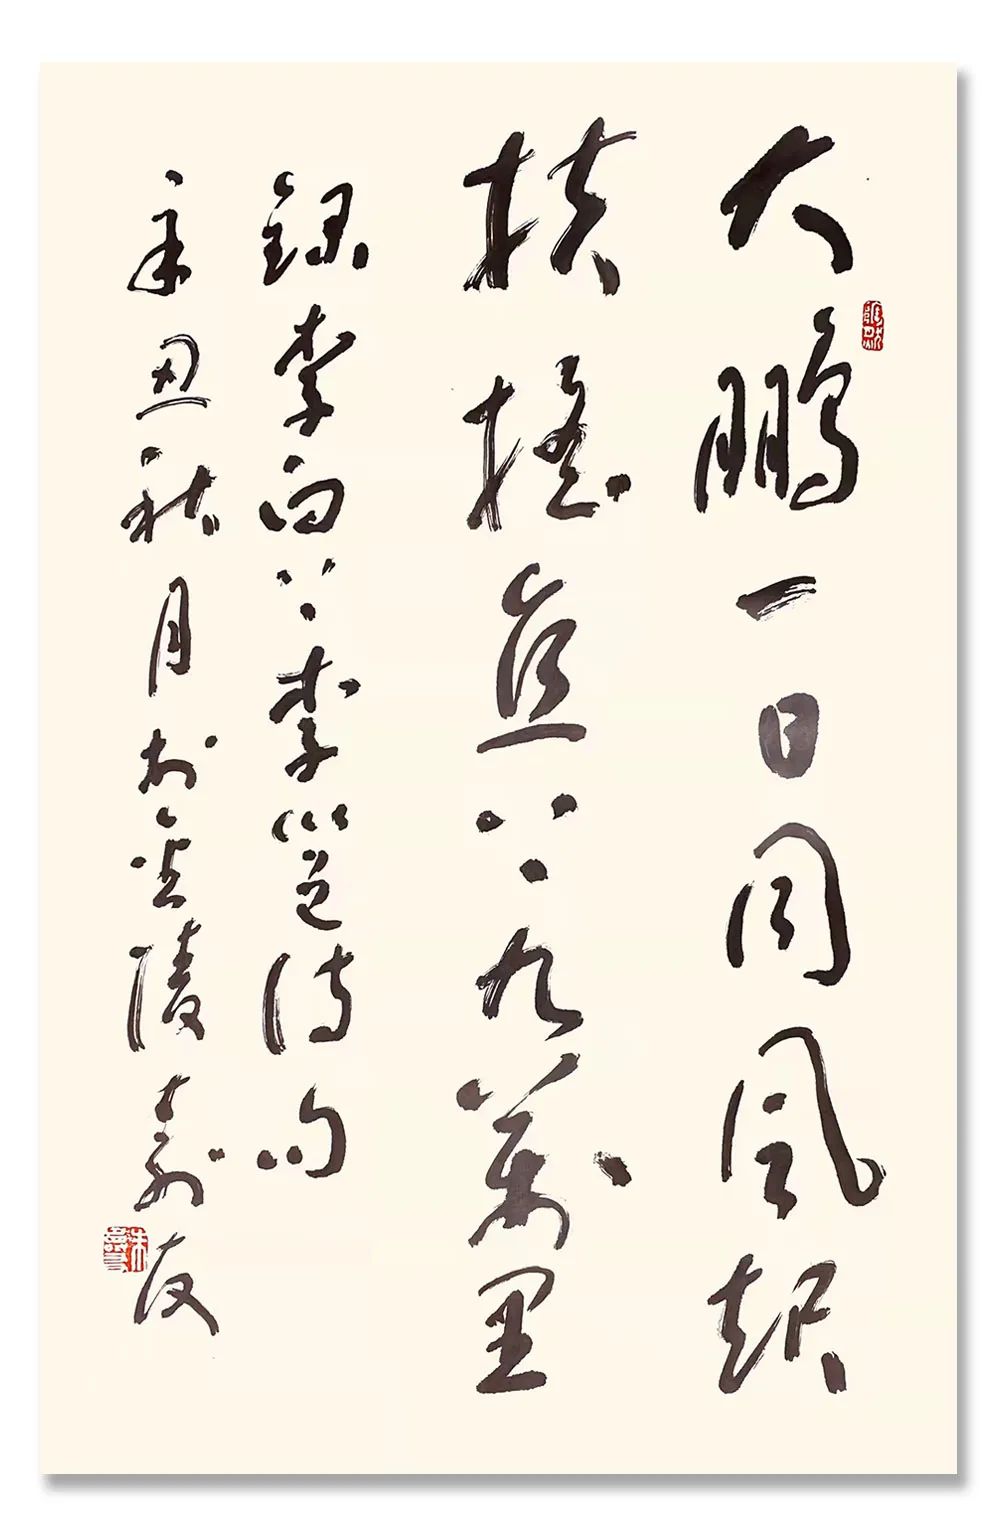 大鵬一日同風起
扶搖直上九萬里
錄李白上李邕詩句
辛丑秋月於金陵壽友